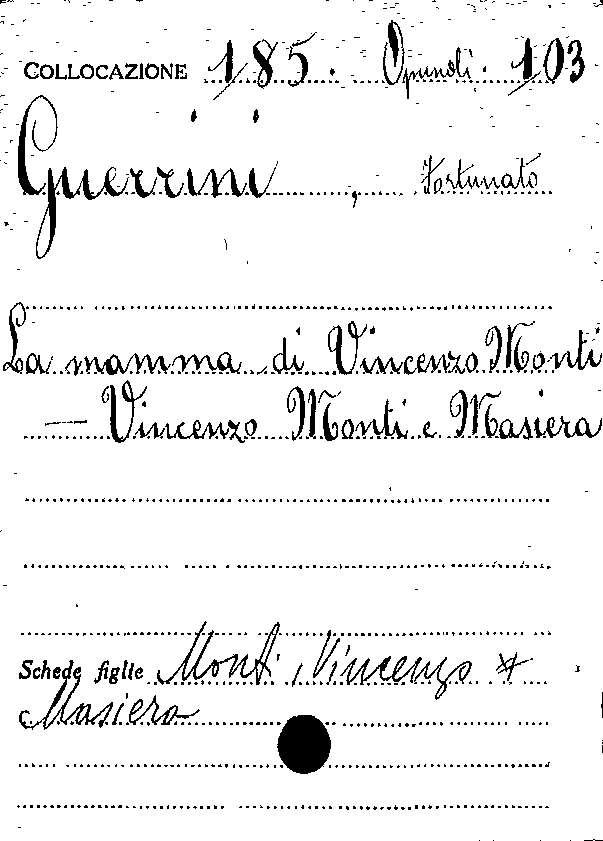 COLLOCAZIONE 185. Opuscoli. 103
Guerrini, Fortunato
La mamma di Vincenzo Monti
— Vincenzo Monti e Masiera
Schede figlie Monti, Vincenzo *
Masiera